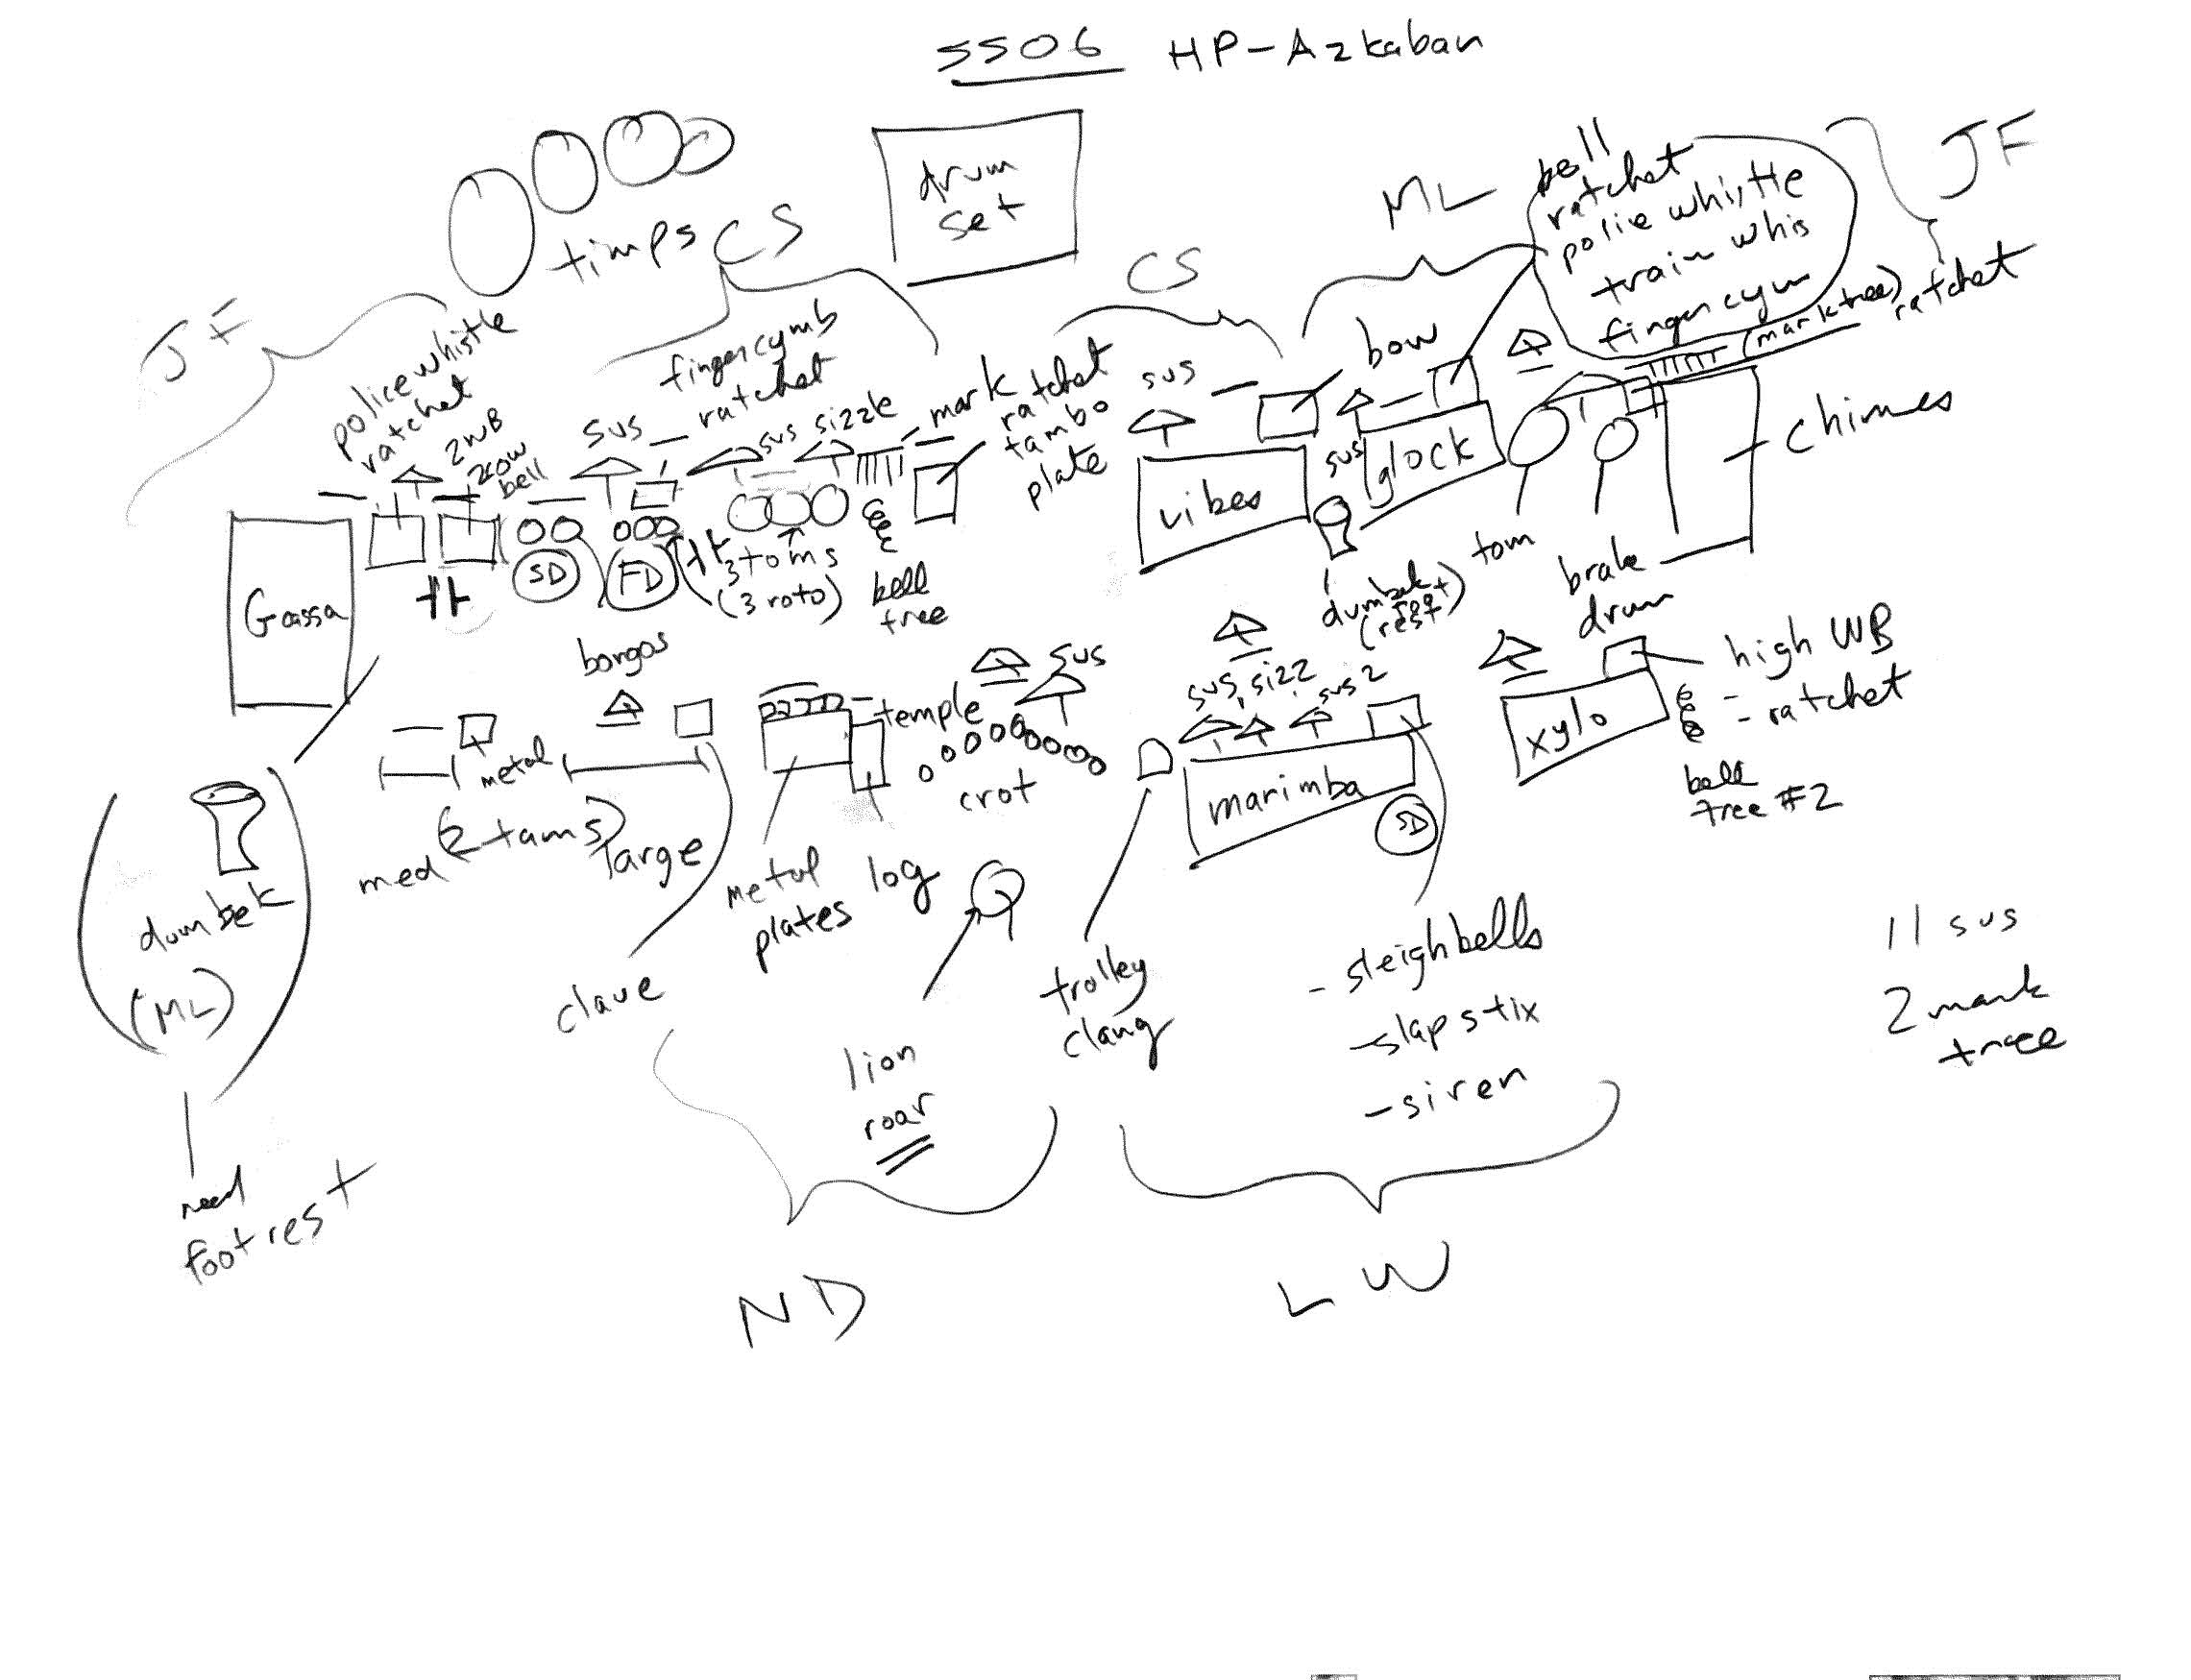 SSO6 HP-Azkaban
timps
drum
set
CS
JF
ML
bell
ratchet
police whistle
train whis
finger cym
JF
(mark tree)
ratchet
CS
police whistle
ratchet
2WB
2cow
bell
sus
finger cymb
ratchet
sus
sizzle
mark
ratchet
tambo
plate
sus
bow
sus
glock
vibes
chimes
Gassa
SD
FD
3 toms
(3 roto)
bell
tree
dumbek
tom
brake
drum
bongos
high WB
- ratchet
xylo
bell
tree #2
metal
med (2 tams) large
temple
sus
crot
sus, sizz, sus 2
marimba
SD
metal
plates
log
clave
lion
roar
trolley
clang
- sleighbells
- slapstix
- siren
dumbek
(ML)
need
footrest
ND
LW
11 sus
2 mark
tree